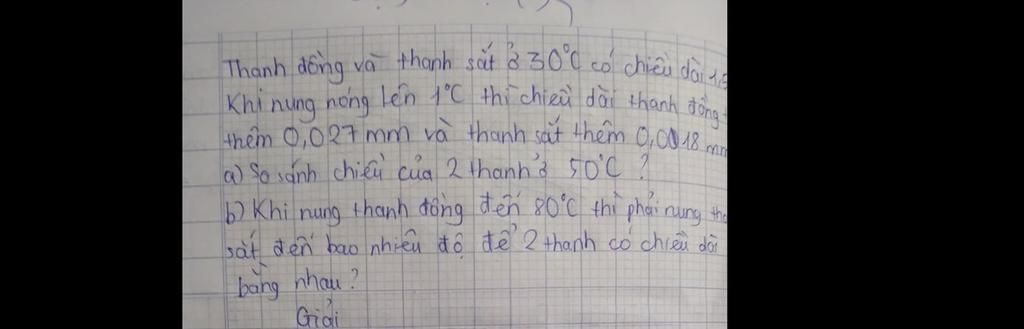 Thanh đồng và thanh sắt ở 30°C có chiều dài 1,5
Khi nung nóng lên 1°C thì chiều dài thanh đồng
thêm 0,027 mm và thanh sắt thêm 0,0018 mm
a) So sánh chiều của 2 thanh ở 50°C ?
b) Khi nung thanh đồng đến 80°C thì phải nung
sắt đến bao nhiêu độ để 2 thanh có chiều dài
bằng nhau ?
Giải